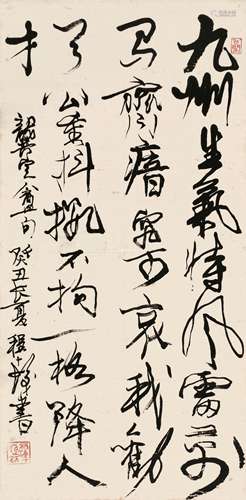 九州生氣恃風雷萬
馬齊瘖究可哀我勸
天公重抖擻不拘一格降人
才
龔定盦句 癸丑長夏 程十髮書